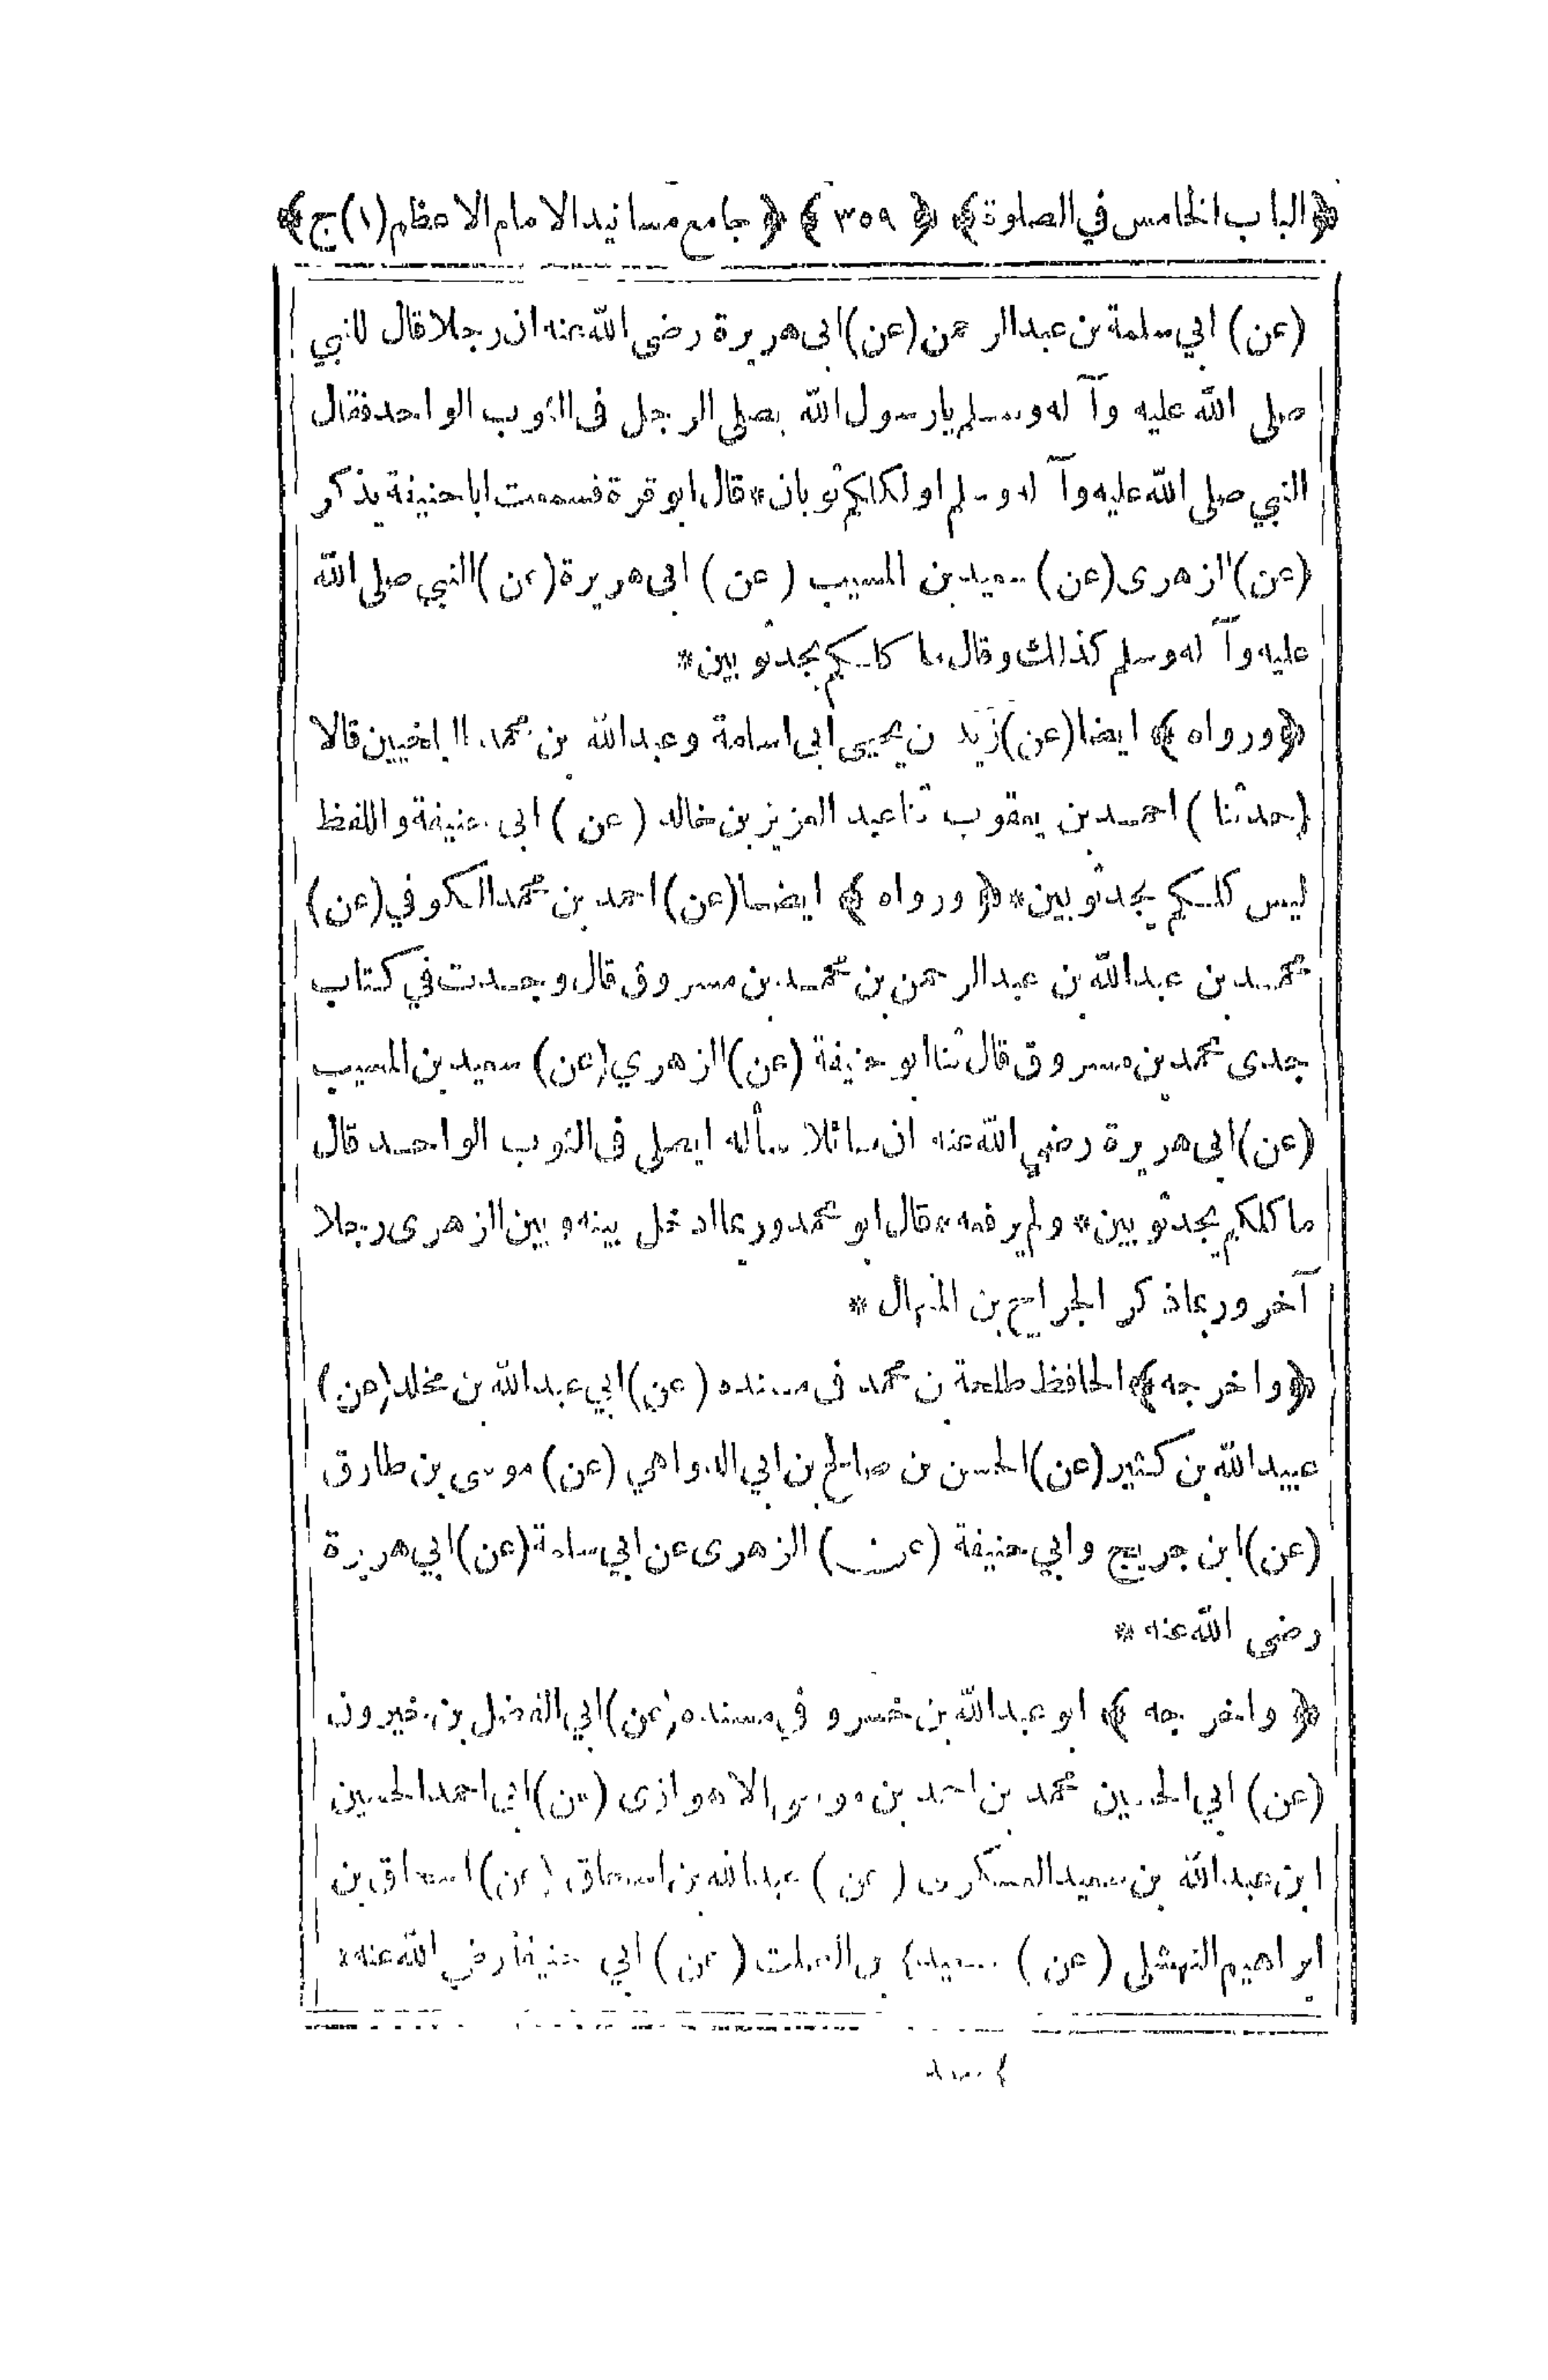 ﴿الباب الخامس في الصلوة﴾ ﴿٣٥٩﴾ ﴿جامع مسانيد الامام الاعظم (١) ج﴾
(عن) ابي سلمة بن عبد الرحمن (عن) ابى هريرة رضى الله عنه ان رجلا قال للنبي
صلى الله عليه وآله وسلم يا رسول الله يصلى الرجل فى الثوب الواحد فقال
النبي صلى الله عليه وآله وسلم او لكلكم ثوبان * قال ابو قرة فسمعت ابا حنيفة يذكر
(عن) الزهرى (عن) سعيد بن المسيب (عن) ابى هريرة (عن) النبي صلى الله
عليه وآله وسلم كذلك وقال ما كلكم يجد ثوبين *
﴿ورواه﴾ ايضا (عن) زيد بن يحيى ابى اسامة وعبد الله بن محمد البلخيين قالا
(حدثنا) احمد بن يعقوب ثنا عبد العزيز بن خالد (عن) ابى حنيفة واللفظ
ليس كلكم يجد ثوبين * ﴿ورواه﴾ ايضا (عن) احمد بن محمد الكوفي (عن)
محمد بن عبد الله بن عبد الرحمن بن محمد بن مسروق قال وجدت في كتاب
جدى محمد بن مسروق قال ثنا ابو حنيفة (عن) الزهري (عن) سعيد بن المسيب
(عن) ابى هريرة رضي الله عنه ان سائلا سأله ايصلى فى الثوب الواحد قال
ما كلكم يجد ثوبين * ولم يرفعه * قال ابو محمد وربما ادخل بينه وبين الزهرى رجلا
آخر وربما ذكر الجراح بن المنهال *
﴿واخرجه﴾ الحافظ طلحة بن محمد فى مسنده (عن) ابي عبد الله بن مخلد (عن)
عبيد الله بن كثير (عن) الحسن بن صالح بن ابي الدواهي (عن) موسى بن طارق
(عن) ابن جريج وابي حنيفة (عن) الزهرى عن ابي سلمة (عن) ابي هريرة
رضى الله عنه *
﴿واخرجه﴾ ابو عبد الله بن خسرو في مسنده (عن) ابي الفضل بن خيرون
(عن) ابي الحسين محمد بن احمد بن موسى الاهوازى (عن) ابى احمد الحسين
ابن عبد الله بن سعيد العسكرى (عن) عبد الله بن اسحاق (عن) اسحاق بن
ابراهيم النهشلى (عن) سعيد بن الصلت (عن) ابي حنيفة رضي الله عنه *